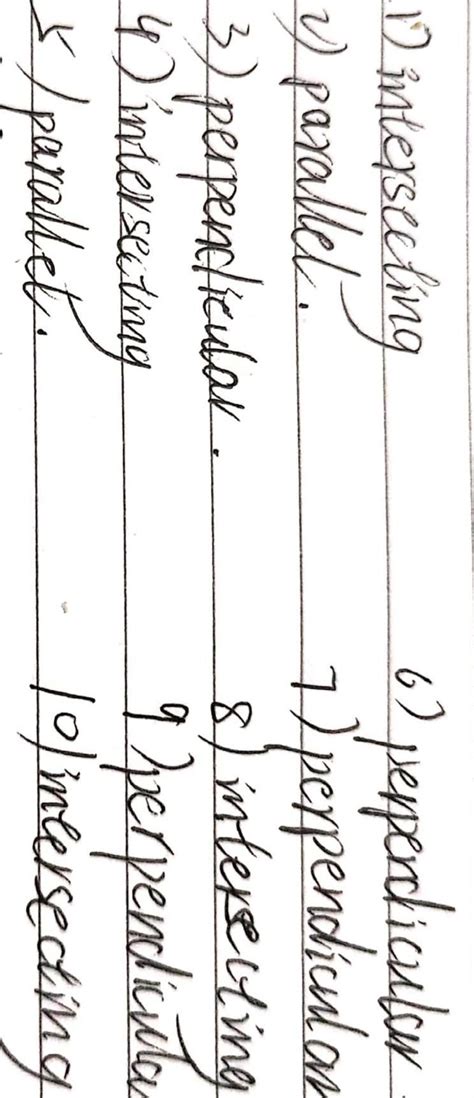 1) intersecting
2) parallel.
3) perpendicular.
4) intersecting
5) parallel.
6) perpendicular
7) perpendicular
8) intersecting
9) perpendicular
10) intersecting